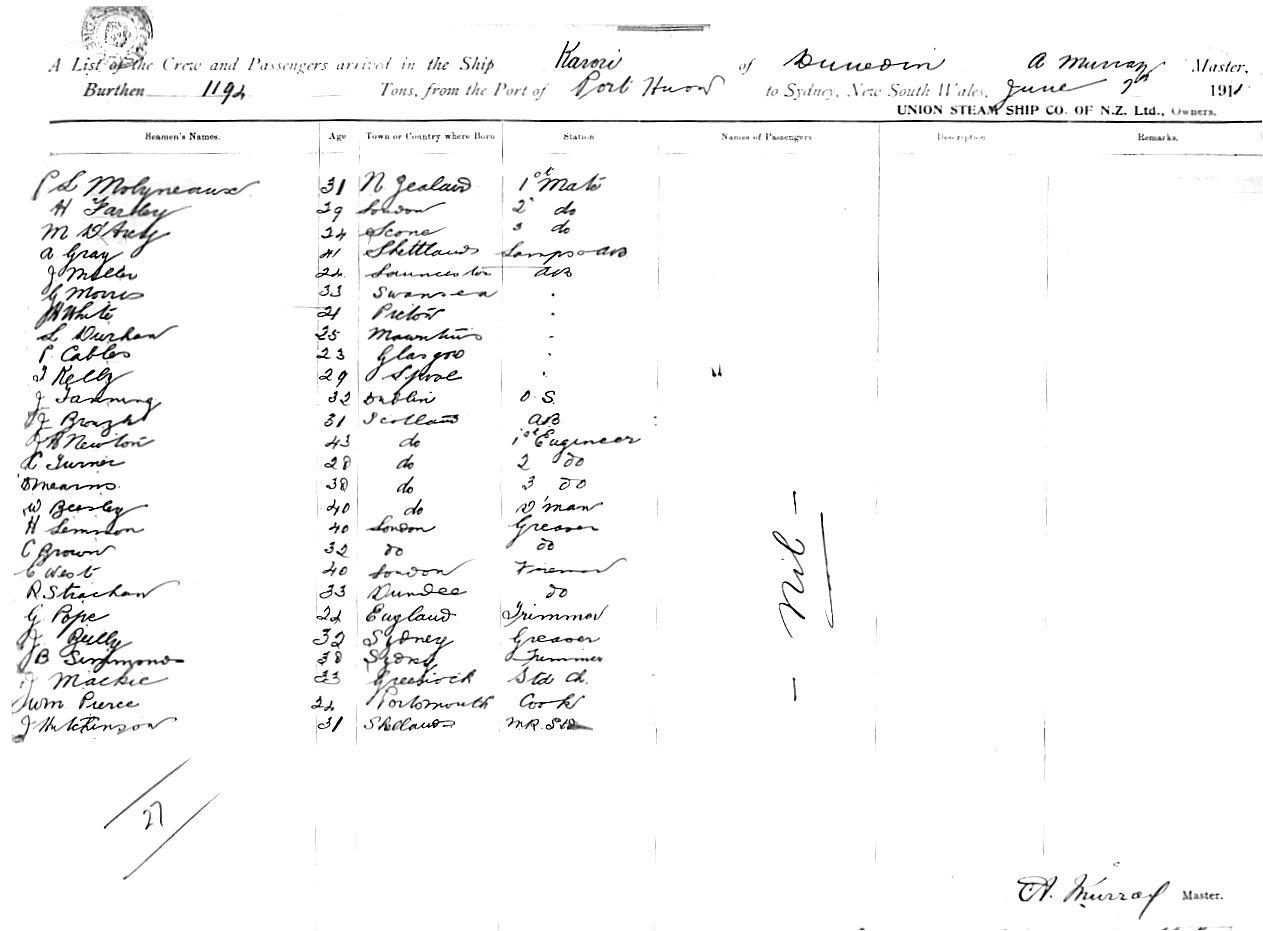 A List of the Crew and Passengers arrived in the Ship Karori of Dunedin A Murray Master,
Burthen 1192 Tons, from the Port of Port Huon to Sydney, New South Wales, June 7th 1911
UNION STEAM SHIP CO. OF N.Z. Ltd., Owners.
Seamen's Names. Age Town or Country where Born Station Names of Passengers. Description Remarks.
P L Molyneaux 31 N Zealand 1st Mate
H Farley 29 London 2 do
M D'Arcy 24 Scone 3 do
A Gray 41 Shetlands Lamps & AB
J Miller 24 Launceston AB
G Morris 33 Swansea
White 21 Picton
L Durham 25 Mauritius
P Cables 23 Glasgow
T Kelly 29 L'pool
J Fanning 32 Dublin O.S.
J Brough 31 Scotland AB
J H Newton 43 do 1st Engineer
Turner 28 do 2 do
D Mearns 38 do 3 do
W Beesley 40 do D'man
H Simmon 40 London Greaser
C Brown 32 do do
C West 40 London Fireman
R. Strachan 33 Dundee do
G Pope 24 England Trimmer
J Reilly 32 Sydney Greaser
J B Simmonds 38 Sydney Trimmer
J Mackie 33 Greenock Std Ch.
Wm Pierce 24 Portsmouth Cook
J Hutchinson 31 Shetlands M.R. Std
- Nil -
27
A. Murray Master.